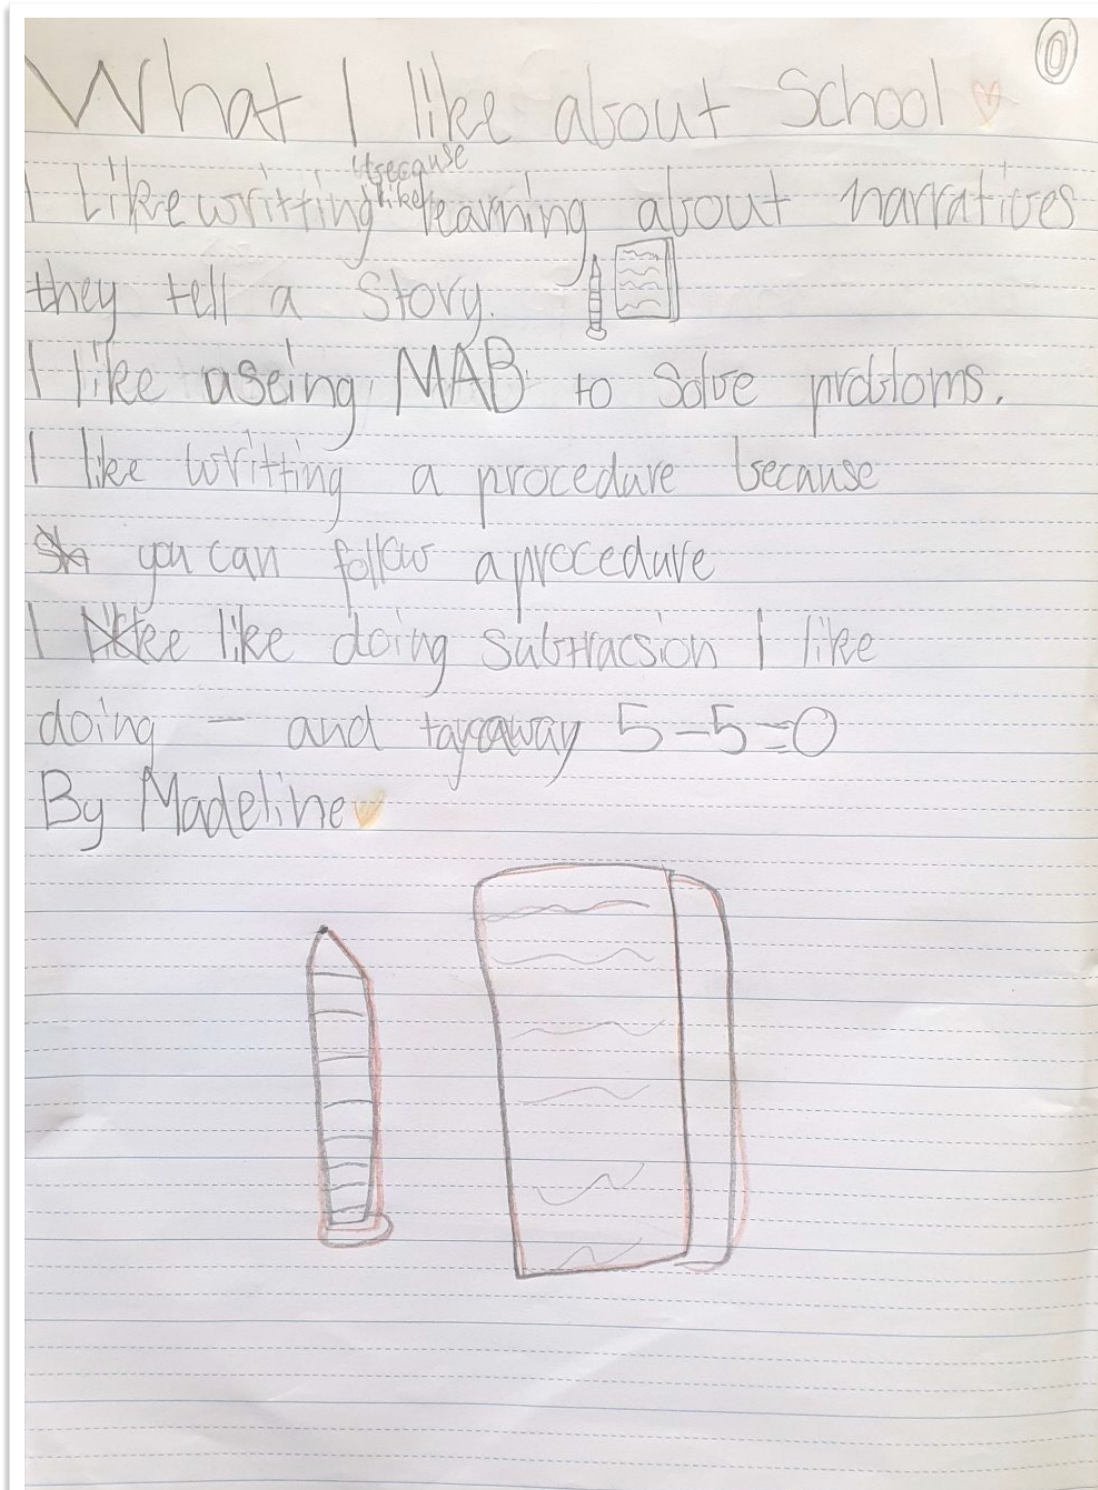 0
What I like about School
I Like writting because I like learning about narratives
they tell a Story.
I like useing MAB to Solve probloms.
I like writting a procedure because
you can follow a procedure
I like like doing subtracsion I like
doing – and takeaway 5-5=0
By Madeline